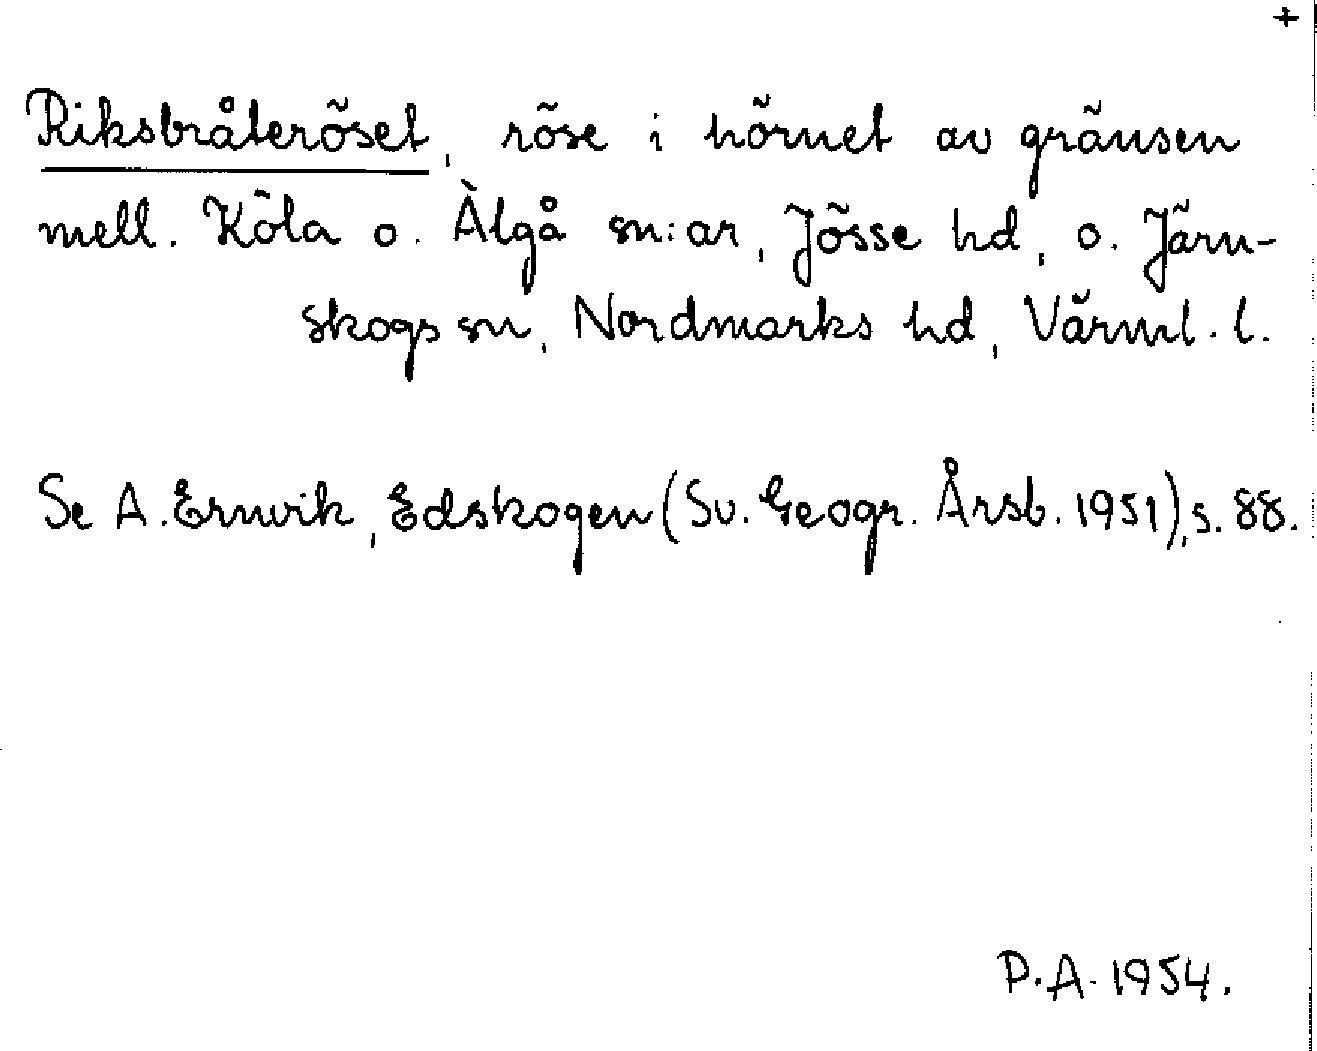 +
Riksbråteröset, röse i hörnet av gränsen
mell. Köla o. Älgå sn:ar, Jösse hd, o. Järn-
skogs sn, Nordmarks hd, Värml. l.
Se A. Ernvik, Edskogen (Sv. Geogr. Årsb. 1951), s. 88.
P.A. 1954.